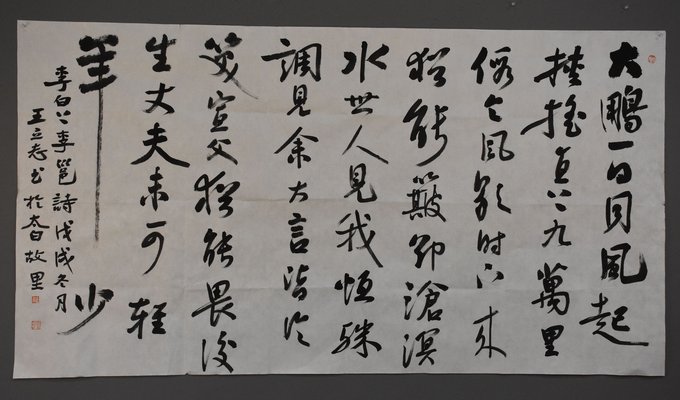 大鵬一日同風起
摶搖直上九萬里
假令風歇時下來
猶能簸却滄溟
水世人見我恒殊
調見余大言皆冷
笑宣父猶能畏後
生丈夫未可輕
年少
李白上李邕詩戊戌冬月
王立志书於太白故里